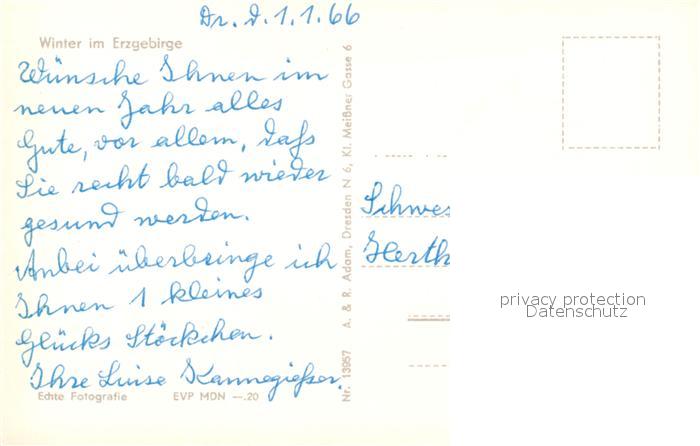 Dr. d. 1.1.66
Winter im Erzgebirge
Wünsche Ihnen im
neuen Jahr alles
Gute, vor allem, daß
Sie recht bald wieder
gesund werden.
Anbei überbringe ich
Ihnen 1 kleines
Glücks Stöckchen.
Ihre Luise Kannegießer.
Echte Fotografie EVP MDN —.20
Nr. 13957 A. & R. Adam, Dresden N 6, Kl. Meißner Gasse 6
Schwes
Herth
privacy protection
Datenschutz